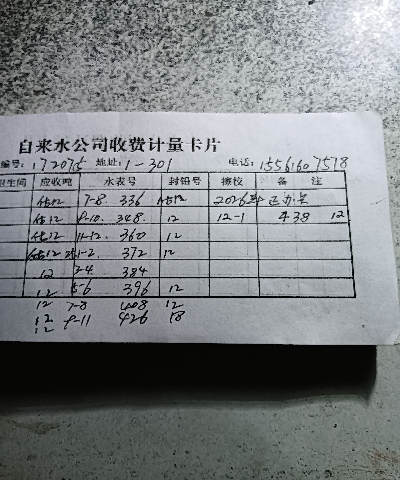 自来水公司收费计量卡片
编号: 172075 地址: 1-301 电话: 15561607518
卫生间 应收吨 水表号 封铅号 擦校 备 注
估12 7-8 336 估12 2026年
估12 9-10. 348. 12 12-1 438 12
估12 11-12. 360 12
估12 1-2. 372 12
12 2-4. 384
12 5-6 396 12
12 7-8 408 12
12 9-11 426 18
12